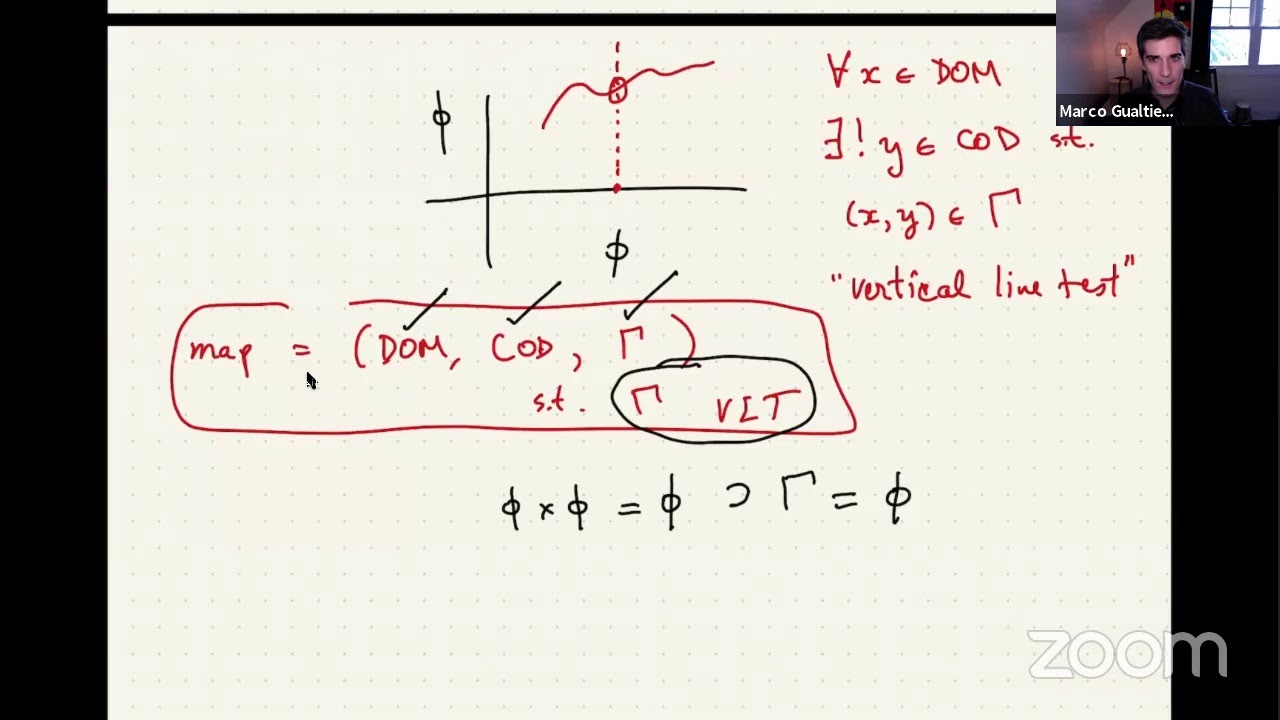 ϕ
∀ x ∈ DOM
Marco Gualtie...
∃! y ∈ COD s.t.
(x, y) ∈ Γ
ϕ
"vertical line test"
map = (DOM, COD, Γ)
s.t. Γ VLT
ϕ × ϕ = ϕ ⊃ Γ = ϕ
zoom